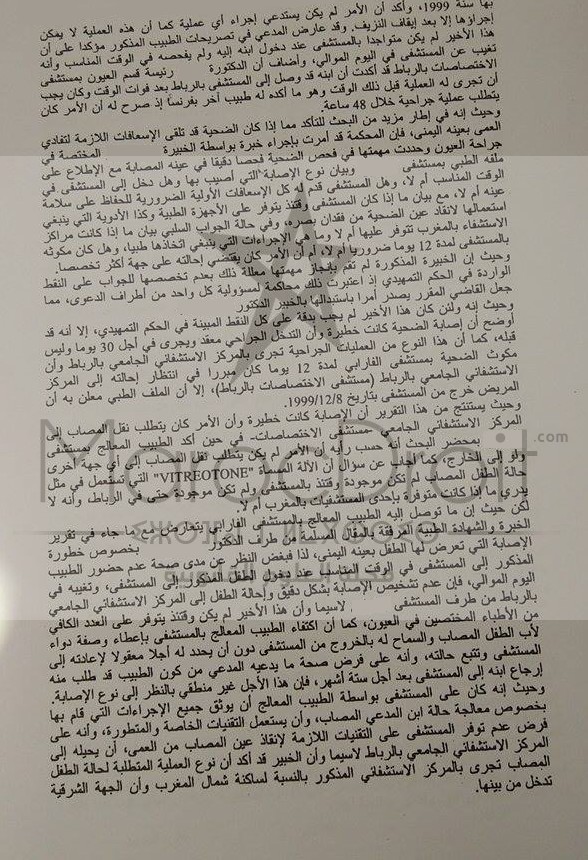 بها سنة 1999، وأكد أن الأمر لم يكن يستدعي إجراء أي عملية كما أن هذه العملية لا يمكن
إجراؤها إلا بعد إيقاف النزيف. وقد عارض المدعي في تصريحات الطبيب المذكور مؤكدا على أن
هذا الأخير لم يكن متواجدا بالمستشفى عند دخول ابنه إليه ولم يفحصه في الوقت المناسب وأنه
تغيب عن المستشفى في اليوم الموالي، وأضاف أن الدكتورة رئيسة قسم العيون بمستشفى
الاختصاصات بالرباط قد أكدت أن ابنه قد وصل إلى المستشفى بالرباط بعد فوات الوقت وكان يجب
أن تجرى له العملية قبل ذلك الوقت وهو ما أكده له طبيب آخر بفرنسا إذ صرح له أن الأمر كان
يتطلب عملية جراحية خلال 48 ساعة.
وحيث إنه في إطار مزيد من البحث للتأكد مما إذا كان الضحية قد تلقى الإسعافات اللازمة لتفادي
العمى بعينه اليمنى، فإن المحكمة قد أمرت بإجراء خبرة بواسطة الخبيرة المختصة في
جراحة العيون وحددت مهمتها في فحص الضحية فحصا دقيقا في عينه المصابة مع الإطلاع على
ملفه الطبي بمستشفى وبيان نوع الإصابة التي أصيب بها وهل دخل إلى المستشفى في
الوقت المناسب أم لا، وهل المستشفى قدم له كل الإسعافات الأولية الضرورية للحفاظ على سلامة
عينه أم لا، مع بيان ما إذا كان المستشفى وقتئذ يتوفر على الأجهزة الطبية وكذا الأدوية التي ينبغي
استعمالها لانقاذ عين الضحية من فقدان بصره، وفي حالة الجواب السلبي بيان ما إذا كانت مراكز
الاستشفاء بالمغرب تتوفر عليها أم لا وما هي الإجراءات التي ينبغي اتخاذها طبيا، وهل كان مكوثه
بالمستشفى لمدة 12 يوما ضروريا أم لا، أم أن الأمر كان يقتضي إحالته على جهة أكثر تخصصا.
وحيث إن الخبيرة المذكورة لم تقم بإنجاز مهمتها معللة ذلك بعدم تخصصها للجواب على النقط
الواردة في الحكم التمهيدي إذ اعتبرت ذلك محاكمة لمسؤولية كل واحد من أطراف الدعوى، مما
جعل القاضي المقرر يصدر أمرا باستبدالها بالخبير الدكتور
وحيث إنه ولئن كان هذا الأخير لم يجب بدقة على كل النقط المبينة في الحكم التمهيدي، إلا أنه قد
أوضح أن إصابة الضحية كانت خطيرة وأن التدخل الجراحي معقد ويجرى في أجل 30 يوما وليس
قبله، كما أن هذا النوع من العمليات الجراحية تجرى بالمركز الاستشفائي الجامعي بالرباط وأن
مكوث الضحية بمستشفى الفارابي لمدة 12 يوما كان مبررا في انتظار إحالته إلى المركز
الاستشفائي الجامعي بالرباط (مستشفى الاختصاصات بالرباط)، إلا أن الملف الطبي معلن به أن
المريض خرج من المستشفى بتاريخ 1999/12/8.
وحيث يستنتج من هذا التقرير أن الإصابة كانت خطيرة وأن الأمر كان يتطلب نقل المصاب إلى
المركز الاستشفائي الجامعي -مستشفى الاختصاصات- في حين أكد الطبيب المعالج بمستشفى
بمحضر البحث أنه حسب رأيه أن الأمر لم يكن يتطلب نقل المصاب إلى أي جهة أخرى
ولو إلى الخارج، كما أجاب عن سؤال أن الآلة المسماة "VITREOTONE" التي تستعمل في مثل
حالة الطفل المصاب لم تكن موجودة وقتئذ بالمستشفى ولم تكن موجودة حتى في الرباط، وأنه لا
يدري ما إذا كانت متوفرة بإحدى المستشفيات بالمغرب أم لا.
لكن حيث إن ما توصل إليه الطبيب المعالج بالمستشفى الفارابي يتعارض مع ما جاء في تقرير
الخبرة والشهادة الطبية المرفقة بالمقال المسلمة من طرف الدكتور بخصوص خطورة
الإصابة التي تعرض لها الطفل بعينه اليمنى، لذا فبغض النظر عن مدى صحة عدم حضور الطبيب
المذكور إلى المستشفى في الوقت المناسب عند دخول الطفل المذكور إلى المستشفى، وتغيبه في
اليوم الموالي، فإن عدم تشخيص الإصابة بشكل دقيق وإحالة الطفل إلى المركز الاستشفائي الجامعي
بالرباط من طرف المستشفى لاسيما وأن هذا الأخير لم يكن وقتئذ يتوفر على العدد الكافي
من الأطباء المختصين في العيون، كما أن اكتفاء الطبيب المعالج بالمستشفى بإعطاء وصفة دواء
لأب الطفل المصاب والسماح له بالخروج من المستشفى دون أن يحدد له أجلا معقولا لإعادته إلى
المستشفى وتتبع حالته، وأنه على فرض صحة ما يدعيه المدعي من كون الطبيب قد طلب منه
إرجاع ابنه إلى المستشفى بعد أجل ستة أشهر، فإن هذا الأجل غير منطقي بالنظر إلى نوع الإصابة.
وحيث إنه كان على المستشفى بواسطة الطبيب المعالج أن يوثق جميع الإجراءات التي قام بها
بخصوص معالجة حالة ابن المدعي المصاب، وأن يستعمل التقنيات الخاصة والمتطورة، وأنه على
فرض عدم توفر المستشفى على التقنيات اللازمة لإنقاذ عين المصاب من العمى، أن يحيله إلى
المركز الاستشفائي الجامعي بالرباط لاسيما وأن الخبير قد أكد أن نوع العملية المتطلبة لحالة الطفل
المصاب تجرى بالمركز الاستشفائي المذكور بالنسبة لساكنة شمال المغرب وأن الجهة الشرقية
تدخل من بينها.
MarocDroit.com